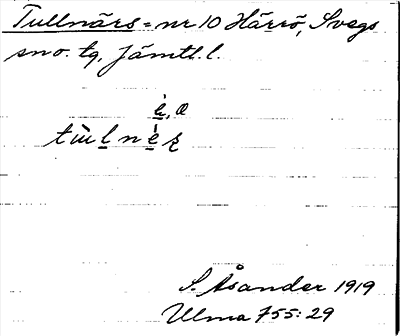 Tullnärs = nr 10 Härrö, Svegs
sno. tg, Jämtl. l.
è, a
tùlnèr
S. Åsander 1919
Ulma 755:29